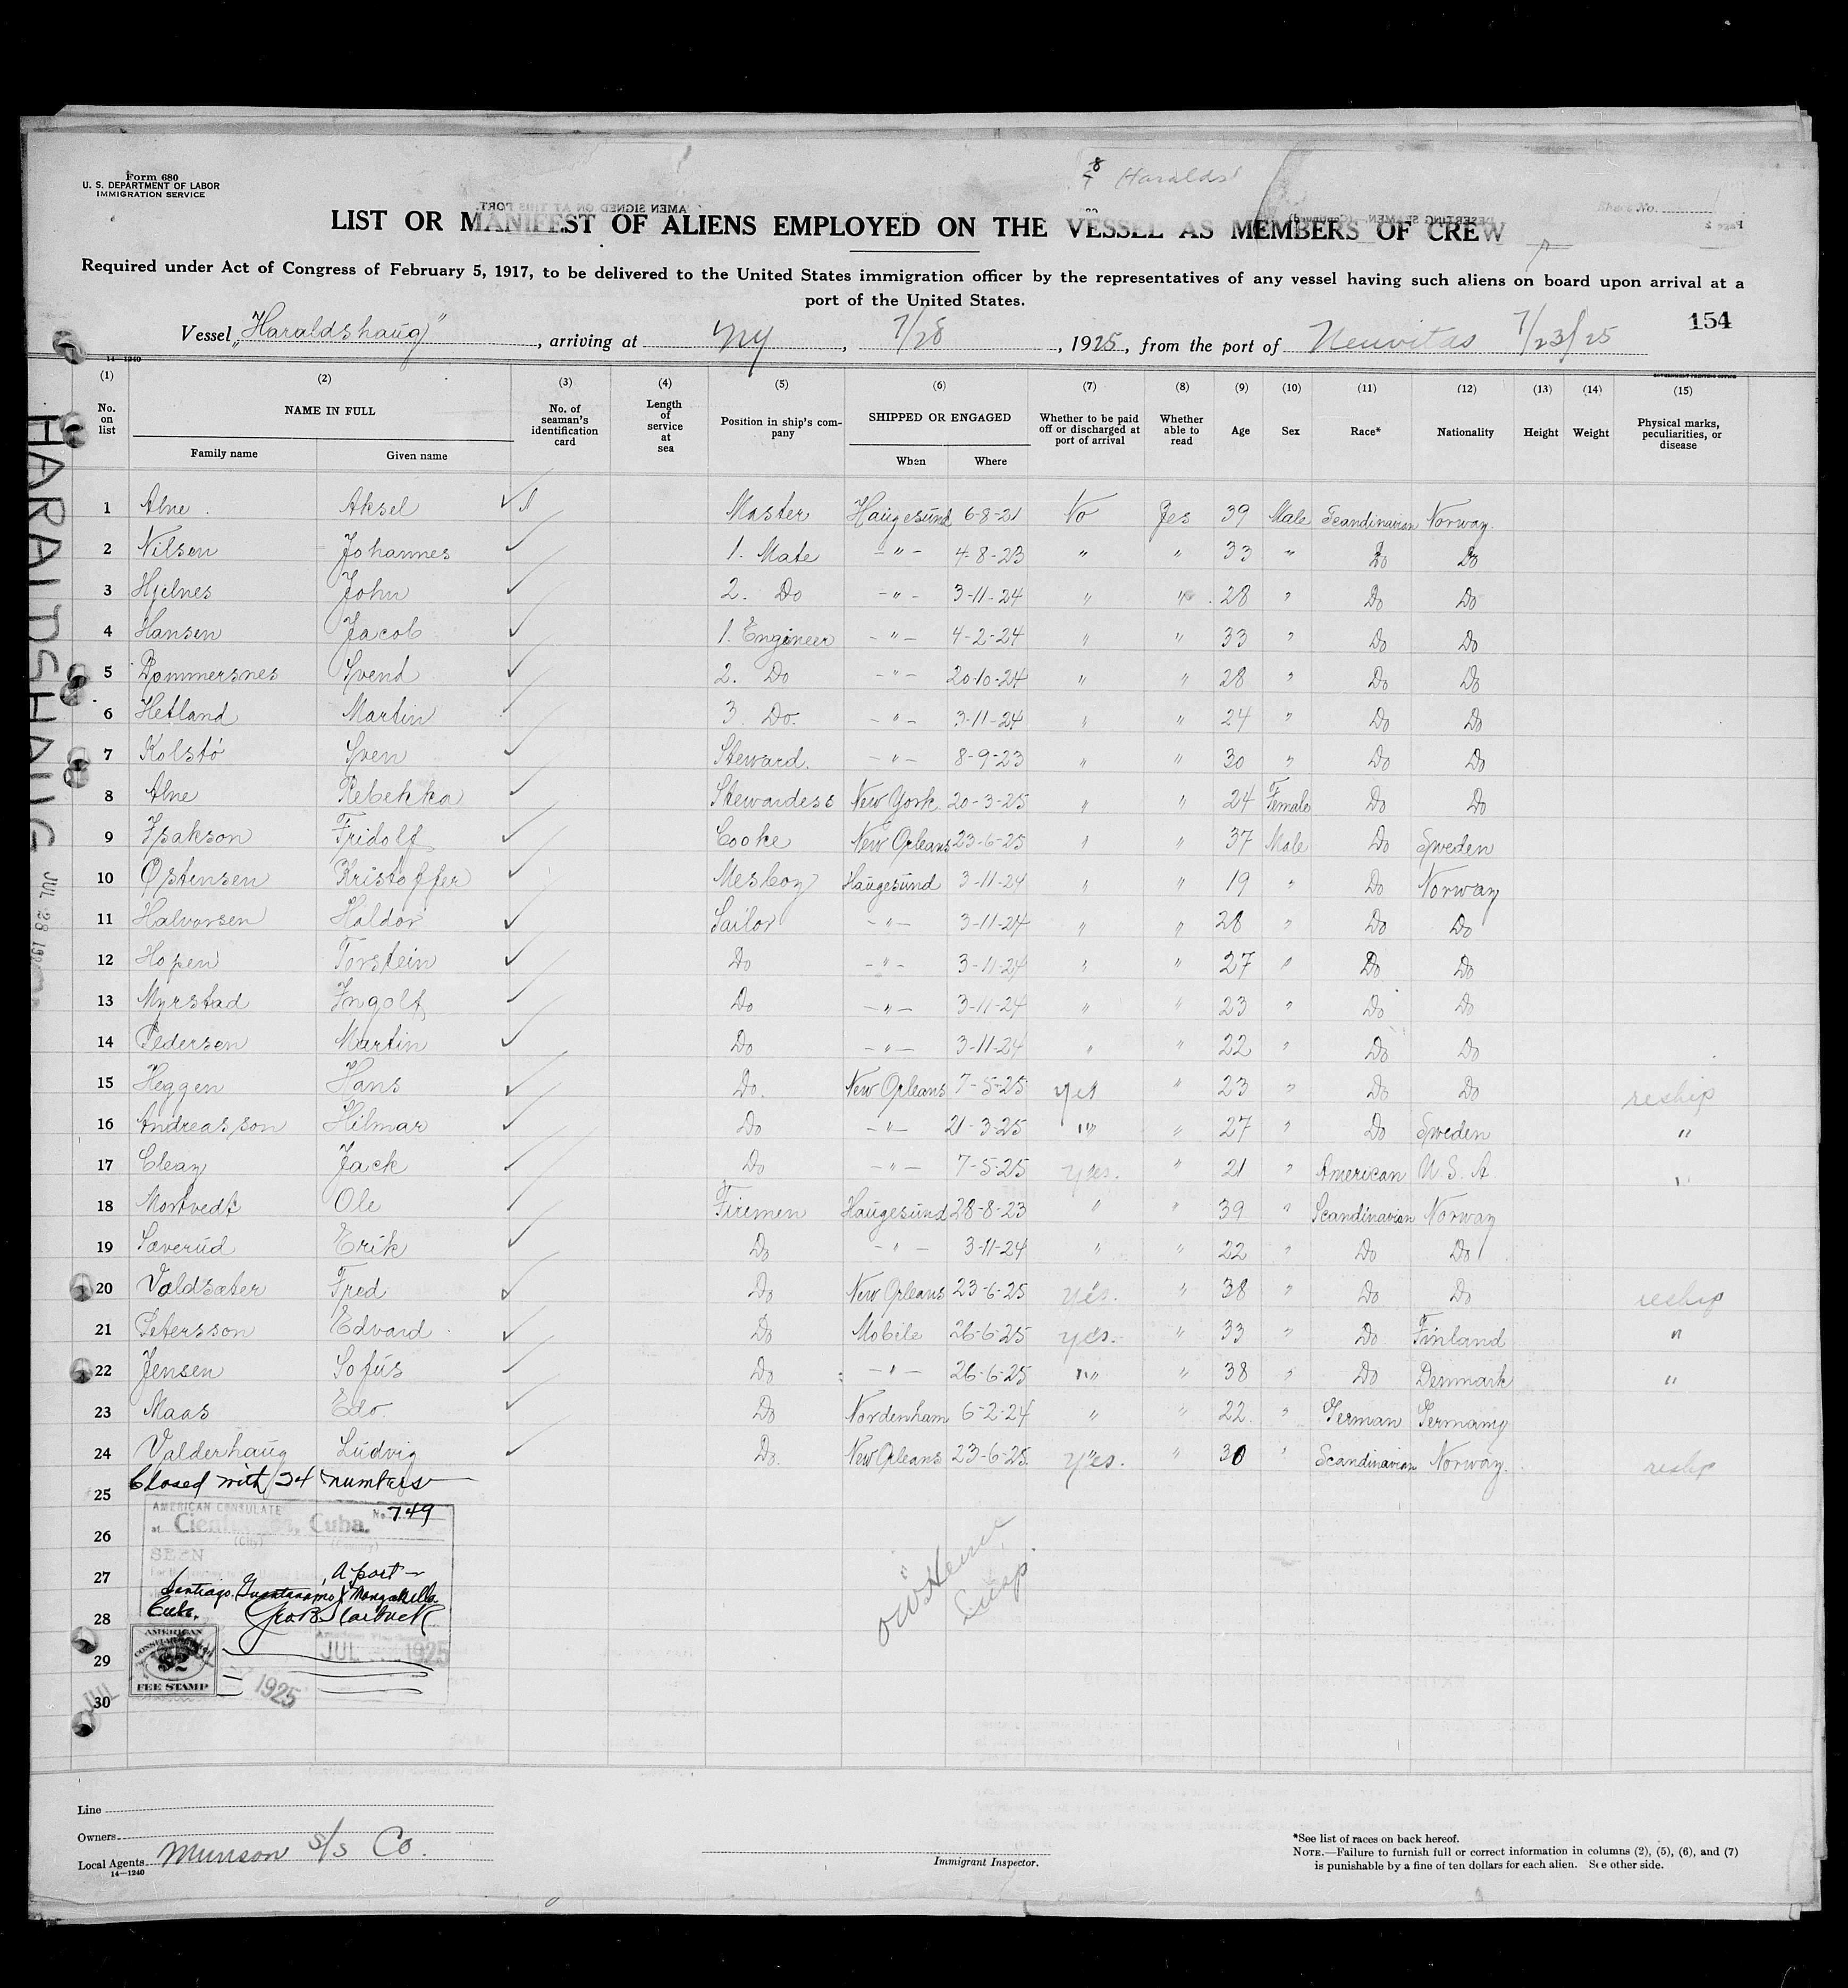 Form 680
U. S. DEPARTMENT OF LABOR
IMMIGRATION SERVICE
Haralds
LIST OR MANIFEST OF ALIENS EMPLOYED ON THE VESSEL AS MEMBERS OF CREW
Required under Act of Congress of February 5, 1917, to be delivered to the United States immigration officer by the representatives of any vessel having such aliens on board upon arrival at a
port of the United States.
154
Vessel "Haraldshaug", arriving at NY, 7/28, 1925, from the port of Neuvitas 7/23/25
14—1240
(1) (2) (3) (4) (5) (6) (7) (8) (9) (10) (11) (12) (13) (14) (15)
No. on list NAME IN FULL Family name Given name No. of seaman's identification card Length of service at sea Position in ship's company SHIPPED OR ENGAGED When Where Whether to be paid off or discharged at port of arrival Whether able to read Age Sex Race* Nationality Height Weight Physical marks, peculiarities, or disease
1 Alne Aksel Master Haugesund 6-8-21 No Yes 39 Male Scandinavian Norway
2 Nilsen Johannes 1. Mate —"— 4-8-23 " " 33 " Do Do
3 Hjelnes John 2. Do —"— 3-11-24 " " 28 " Do Do
4 Hansen Jacob 1. Engineer —"— 4-2-24 " " 33 " Do Do
5 Pommersnes Svend 2. Do —"— 20-10-24 " " 28 " Do Do
6 Hetland Martin 3. Do. —"— 3-11-24 " " 24 " Do Do
7 Kolstø Sven Steward. —"— 8-9-23 " " 30 " Do Do
8 Alne Rebekka Stewardess New York 20-3-25 " " 24 Female Do Do
9 Isakson Fridolf Cooke New Orleans 23-6-25 " " 37 Male Do Sweden
10 Østensen Kristoffer Mesboy Haugesund 3-11-24 " " 19 " Do Norway
11 Halvorsen Haldor Sailor —"— 3-11-24 " " 28 " Do Do
12 Hopen Torstein Do —"— 3-11-24 " " 27 " Do Do
13 Myrstad Ingolf Do —"— 3-11-24 " " 23 " Do Do
14 Pedersen Martin Do —"— 3-11-24 " " 22 " Do Do
15 Heggen Hans Do. New Orleans 7-5-25 yes " 23 " Do Do reship
16 Andreasson Hilmar Do —"— 21-3-25 " " 27 " Do Sweden "
17 Cleay Jack Do —"— 7-5-25 yes. " 21 " American U.S.A "
18 Mortvedt Ole Firemen Haugesund 28-8-23 " " 39 " Scandinavian Norway
19 Sæverud Erik Do —"— 3-11-24 " " 22 " Do Do
20 Valdsæter Fred Do New Orleans 23-6-25 yes. " 38 " Do Do reship
21 Petersson Edvard Do Mobile 26-6-25 yes. " 33 " Do Finland "
22 Jensen Sofus Do —"— 26-6-25 " " 38 " Do Denmark "
23 Maas Edo. Do Nordenham 6-2-24 " " 22 " German Germany
24 Valderhaug Ludvig Do. New Orleans 23-6-25 yes. " 30 " Scandinavian Norway. reship
25 Closed with 24 numbers
26
27
28
29
30
AMERICAN CONSULATE No. 749
at Cienfuegos, Cuba.
(City) (Country)
SEEN
a port
Santiago, Guantanamo & Manzanillo
Cuba.
AMERICAN CONSULAR SERVICE $2 FEE STAMP
JUL 1925
1925
JUL
HARALDSHAUG JUL 28 19
Line
Owners
Local Agents Munson S/S Co.
14—1240
Immigrant Inspector.
*See list of races on back hereof.
NOTE.—Failure to furnish full or correct information in columns (2), (5), (6), and (7)
is punishable by a fine of ten dollars for each alien. See other side.